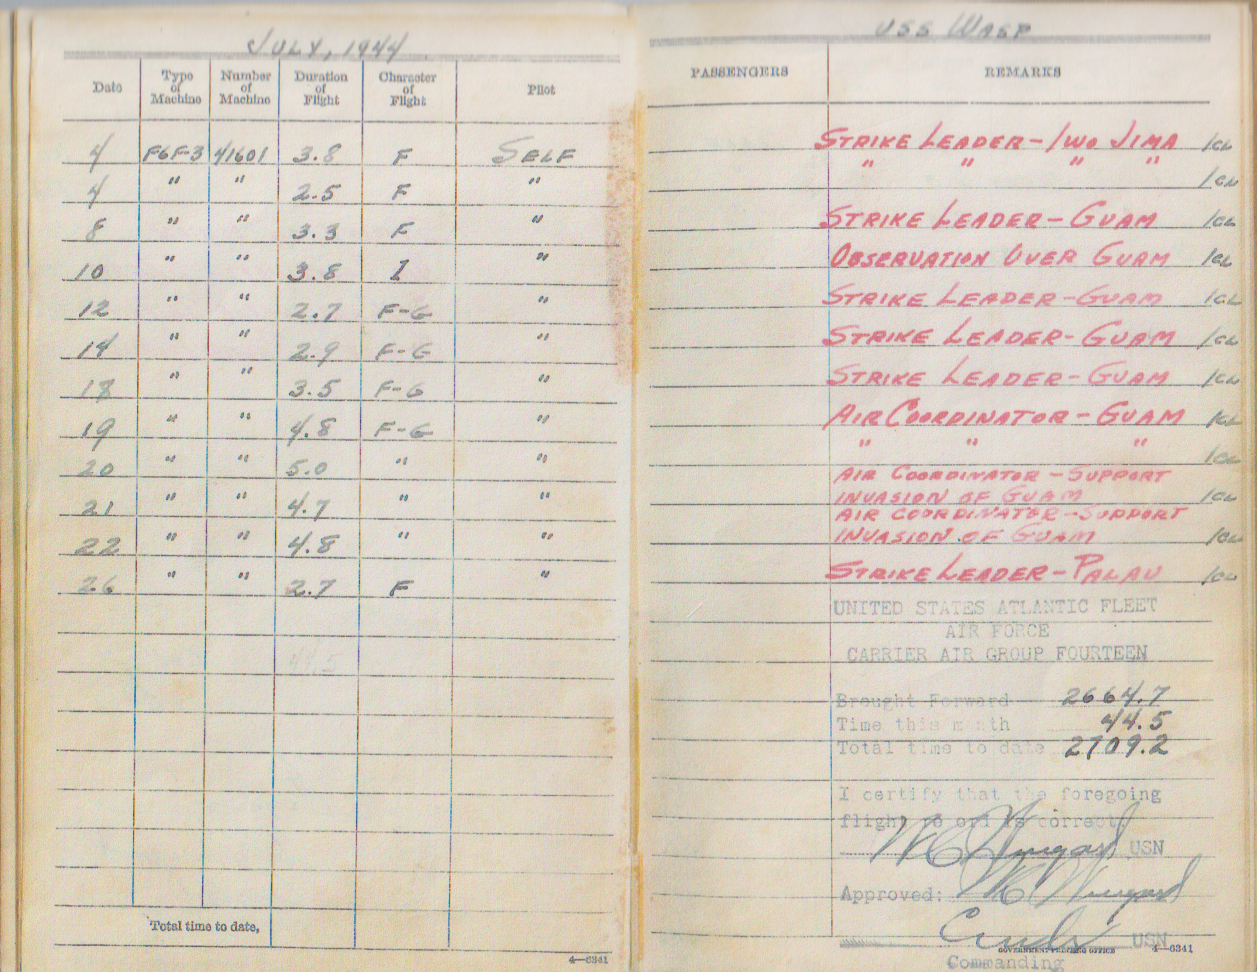 JULY, 1944
Date
Type of Machine
Number of Machine
Duration of Flight
Character of Flight
Pilot
4 F6F-3 41601 3.8 F SELF
4 " " 2.5 F "
8 " " 3.3 F "
10 " " 3.8 I "
12 " " 2.7 F-G "
14 " " 2.9 F-G "
18 " " 3.5 F-G "
19 " " 4.8 F-G "
20 " " 5.0 " "
21 " " 4.7 " "
22 " " 4.8 " "
26 " " 2.7 F "
44.5
Total time to date,
4—6341
USS WASP
PASSENGERS
REMARKS
STRIKE LEADER - IWO JIMA 1CL
" " " " 1CL
STRIKE LEADER - GUAM 1CL
OBSERVATION OVER GUAM 1CL
STRIKE LEADER - GUAM 1CL
STRIKE LEADER - GUAM 1CL
STRIKE LEADER - GUAM 1CL
AIR COORDINATOR - GUAM 1CL
" " " 1CL
AIR COORDINATOR - SUPPORT
INVASION OF GUAM 1CL
AIR COORDINATOR - SUPPORT
INVASION OF GUAM 1CL
STRIKE LEADER - PALAU 1CL
UNITED STATES ATLANTIC FLEET
AIR FORCE
CARRIER AIR GROUP FOURTEEN
Brought Forward 2664.7
Time this month 44.5
Total time to date 2709.2
I certify that the foregoing
flight record is correct.
USN
Approved:
Cmdr USN
GOVERNMENT PRINTING OFFICE 4—6341
Commanding